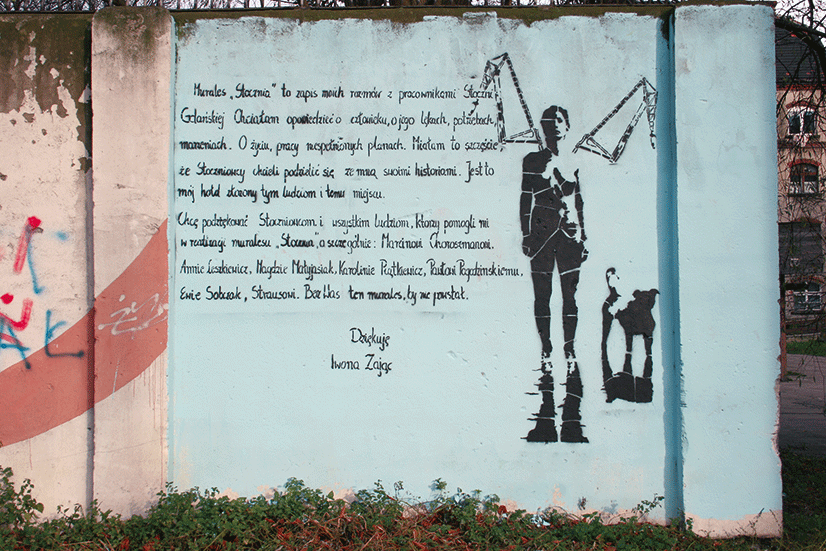 Murales „Stocznia" to zapis moich rozmów z pracownikami Stoczni
Gdańskiej Chciałam opowiedzieć o człowieku, o jego lękach, potrzebach,
marzeniach. O życiu, pracy niespełnionych planach. Miałam to szczęście,
że Stoczniowcy chcieli podzielić się ze mną swoimi historiami. Jest to
mój hołd złożony tym ludziom i temu miejscu.
Chcę podziękować Stoczniowcom i wszystkim ludziom, którzy pomogli mi
w realizacji muralesu „Stocznia", a szczególnie: Marcinowi Chomoszmanowi.
Annie Leszkiewicz, Magdzie Małyjasiak, Karolinie Piątkiewicz, Pawłowi Pogodzińskiemu,
Ewie Sobczak, Strausowi. Bez Was ten murales, by nie powstał.
Dziękuję
Iwona Zając